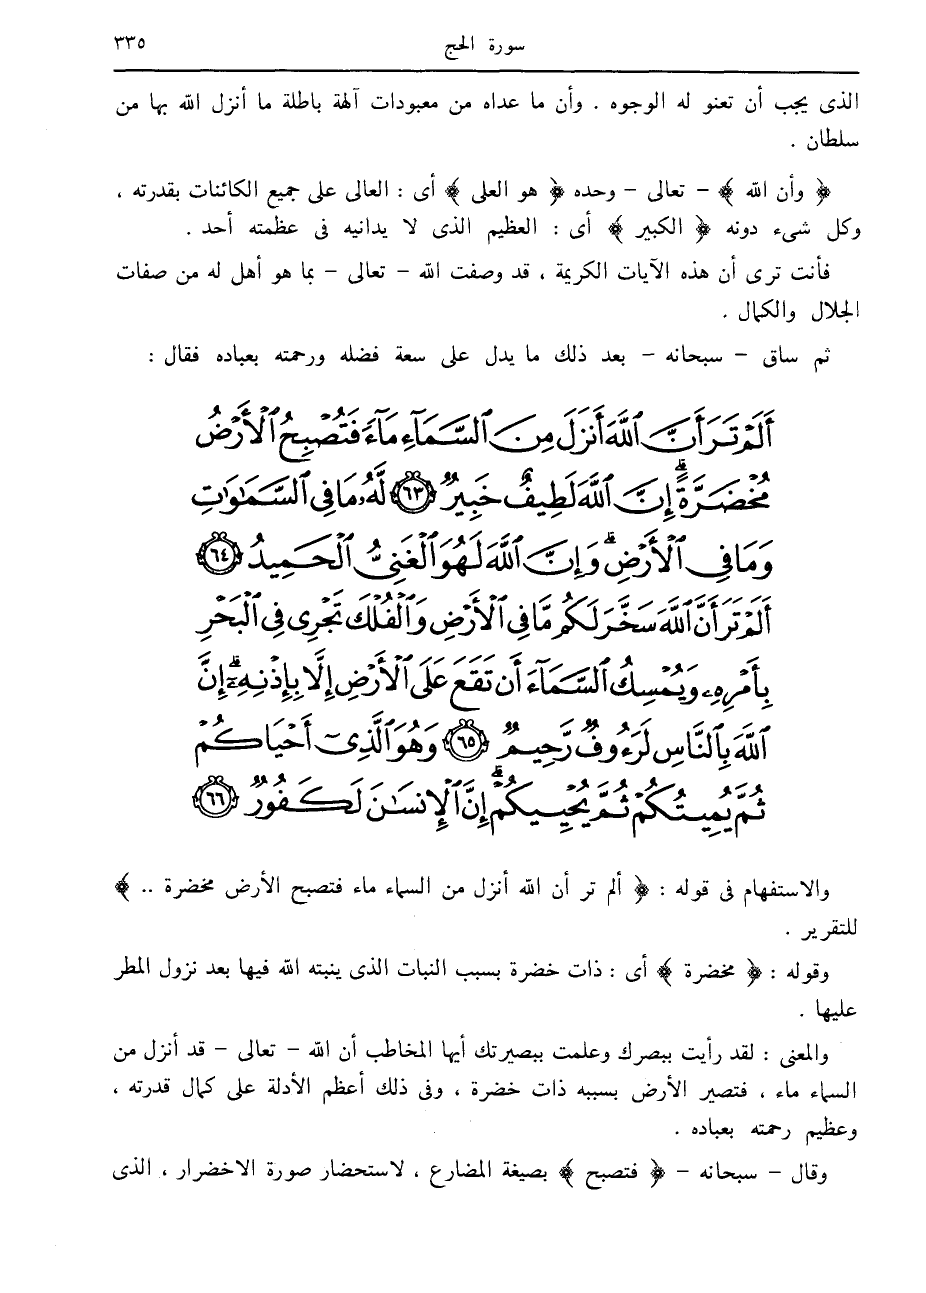 سورة الحج ٣٣٥
الذى يجب أن تعنو له الوجوه . وأن ما عداه من معبودات آلهة باطلة ما أنزل الله بها من
سلطان .
﴿ وأن الله ﴾ – تعالى – وحده ﴿ هو العلى ﴾ أى : العالى على جميع الكائنات بقدرته ،
وكل شىء دونه ﴿ الكبير ﴾ أى : العظيم الذى لا يدانيه فى عظمته أحد .
فأنت ترى أن هذه الآيات الكريمة ، قد وصفت الله – تعالى – بما هو أهل له من صفات
الجلال والكمال .
ثم ساق – سبحانه – بعد ذلك ما يدل على سعة فضله ورحمته بعباده فقال :
أَلَمْ تَرَ أَنَّ ٱللَّهَ أَنزَلَ مِنَ ٱلسَّمَآءِ مَآءً فَتُصْبِحُ ٱلْأَرْضُ
مُخْضَرَّةً ۗ إِنَّ ٱللَّهَ لَطِيفٌ خَبِيرٌ ﴿٦٣﴾ لَّهُۥ مَا فِى ٱلسَّمَٰوَٰتِ
وَمَا فِى ٱلْأَرْضِ ۗ وَإِنَّ ٱللَّهَ لَهُوَ ٱلْغَنِىُّ ٱلْحَمِيدُ ﴿٦٤﴾
أَلَمْ تَرَ أَنَّ ٱللَّهَ سَخَّرَ لَكُم مَّا فِى ٱلْأَرْضِ وَٱلْفُلْكَ تَجْرِى فِى ٱلْبَحْرِ
بِأَمْرِهِۦ وَيُمْسِكُ ٱلسَّمَآءَ أَن تَقَعَ عَلَى ٱلْأَرْضِ إِلَّا بِإِذْنِهِۦٓ ۗ إِنَّ
ٱللَّهَ بِٱلنَّاسِ لَرَءُوفٌ رَّحِيمٌ ﴿٦٥﴾ وَهُوَ ٱلَّذِىٓ أَحْيَاكُمْ
ثُمَّ يُمِيتُكُمْ ثُمَّ يُحْيِيكُمْ ۗ إِنَّ ٱلْإِنسَٰنَ لَكَفُورٌ ﴿٦٦﴾
والاستفهام فى قوله : ﴿ ألم تر أن الله أنزل من السماء ماء فتصبح الأرض مخضرة .. ﴾
للتقرير .
وقوله : ﴿ مخضرة ﴾ أى : ذات خضرة بسبب النبات الذى ينبته الله فيها بعد نزول المطر
عليها .
والمعنى : لقد رأيت ببصرك وعلمت ببصيرتك أيها المخاطب أن الله – تعالى – قد أنزل من
السماء ماء ، فتصير الأرض بسببه ذات خضرة ، وفى ذلك أعظم الأدلة على كمال قدرته ،
وعظيم رحمته بعباده .
وقال – سبحانه – ﴿ فتصبح ﴾ بصيغة المضارع ، لاستحضار صورة الاخضرار ، الذى